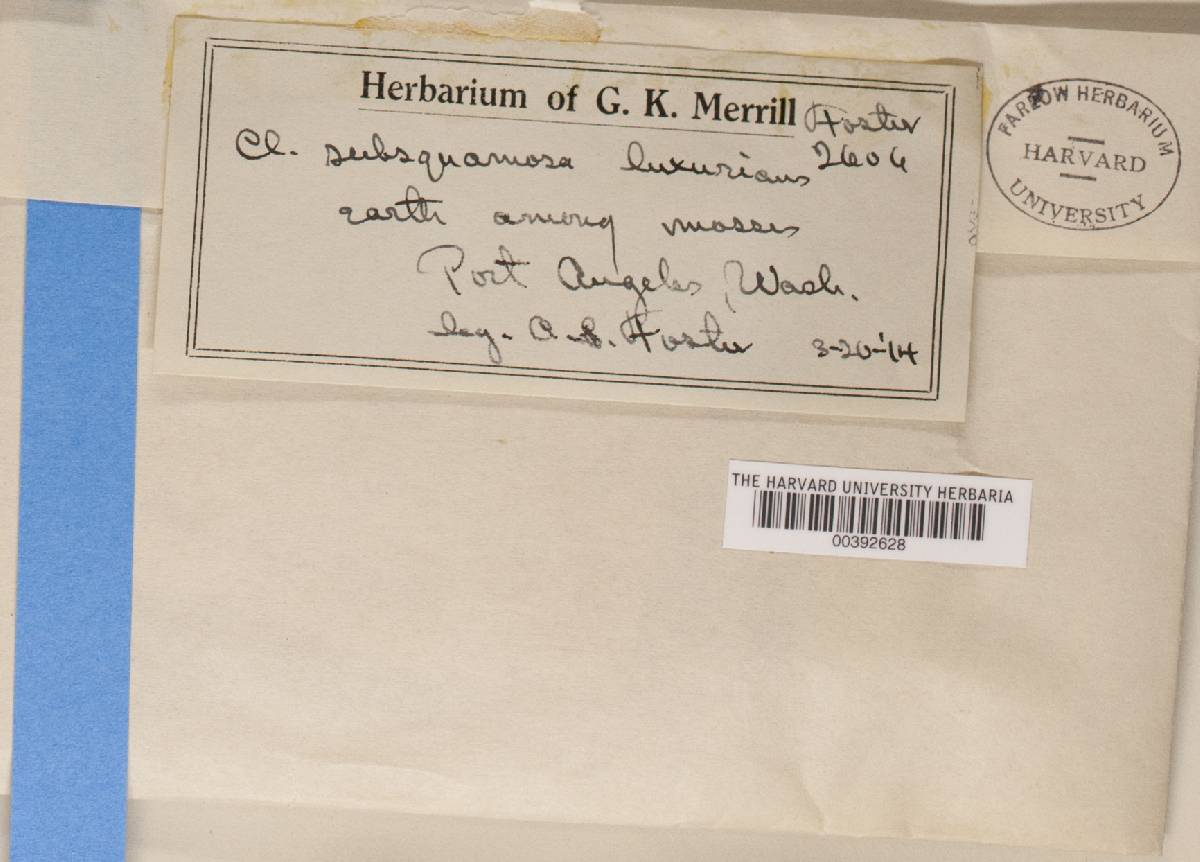 Herbarium of G. K. Merrill Foster
Cl. subsquamosa luxurians 2606
earth among mosses
Port Angeles, Wash.
leg. A. S. Foster 3-20-'14
FARLOW HERBARIUM
HARVARD
UNIVERSITY
THE HARVARD UNIVERSITY HERBARIA
00392628